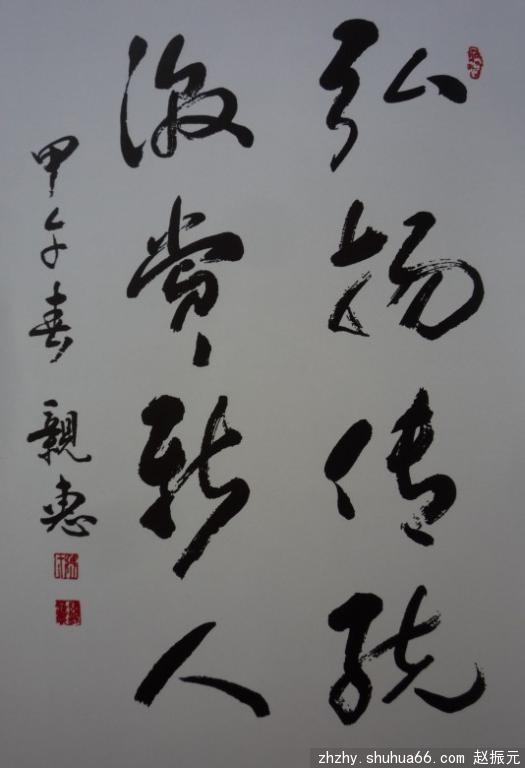 弘扬传统
激赏新人
甲午春 親惠
zhzhy.shuhua66.com 赵振元